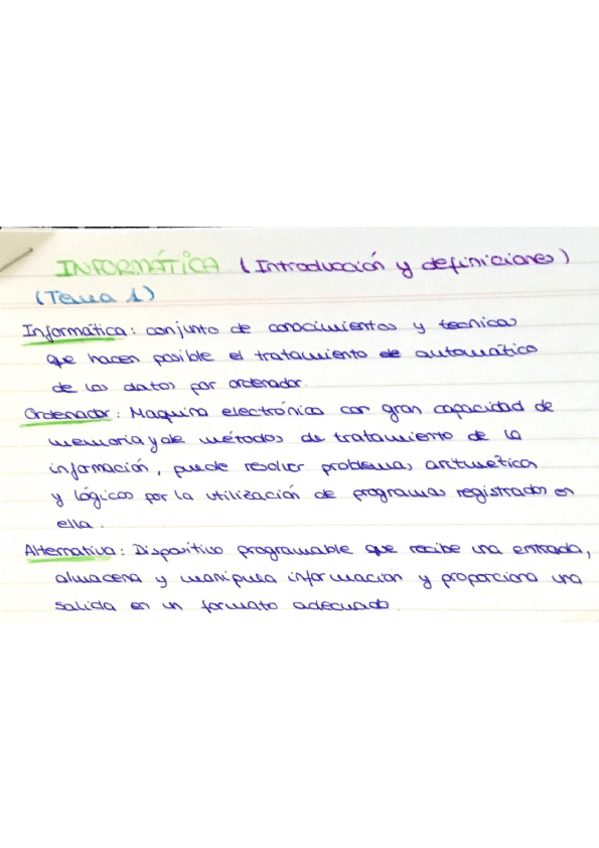 INFORMÁTICA (Introducción y definiciones)
(Tema 1)
Informática: conjunto de conocimientos y tecnicas
que hacen posible el tratamiento de automático
de los datos por ordenador.
Ordenador: Maquina electrónica con gran capacidad de
memoria y de métodos de tratamiento de la
información, puede resolver problemas aritmética
y lógicos por la utilización de programas registrados en
ella.
Alternativa: Dispositivo programable que recibe una entrada,
almacena y manipula informacion y proporciona una
salida en un formato adecuado.